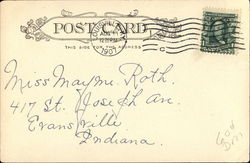 POST CARD
THIS SIDE FOR THE ADDRESS.
1907
Miss Mayme Roth.
417 St. Joseph Av.
Evansville
Indiana.